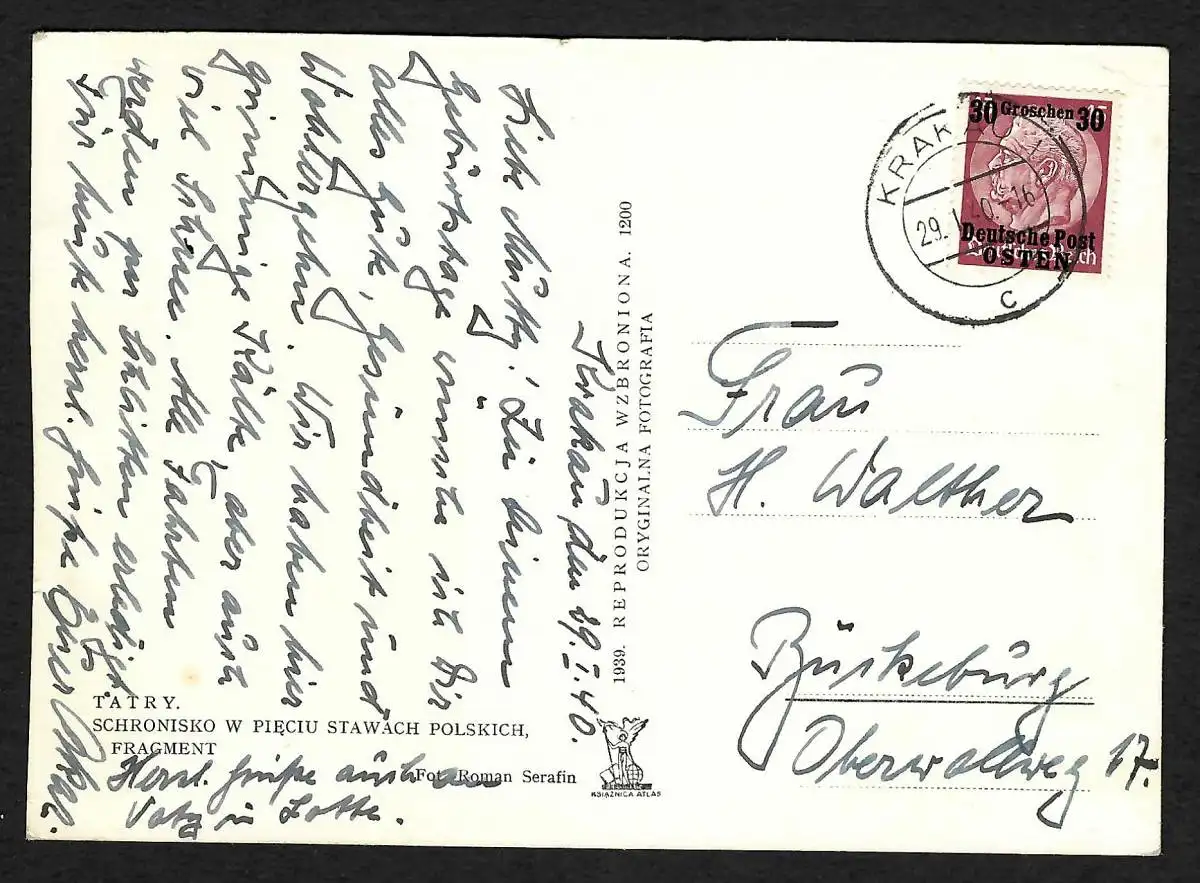 Krakau den 29.I.40.
Liebe Mutty! Zu deinem
Geburtstage wünsche ich Dir
alles gute, Gesundheit und
Wohlergehen. Wir haben hier
grimmige Kälte, aber auch
viel Schnee. Alle Fahrten
werden per Schlitten erledigt.
Für heute herzl. Grüße Euer
Herzl. Grüße auch an
Vati u Lotte.
TATRY.
SCHRONISKO W PIĘCIU STAWACH POLSKICH,
FRAGMENT
Fot. Roman Serafin
1939. REPRODUKCJA WZBRONIONA. 1200
ORYGINALNA FOTOGRAFIA
KSIĄŻNICA ATLAS
30 Groschen 30
Deutsche Post
OSTEN
Deutsches Reich
KRAKAU 1
29.1.40.-16
c
Frau
H. Walther
Bückeburg
Oberwallweg 17.